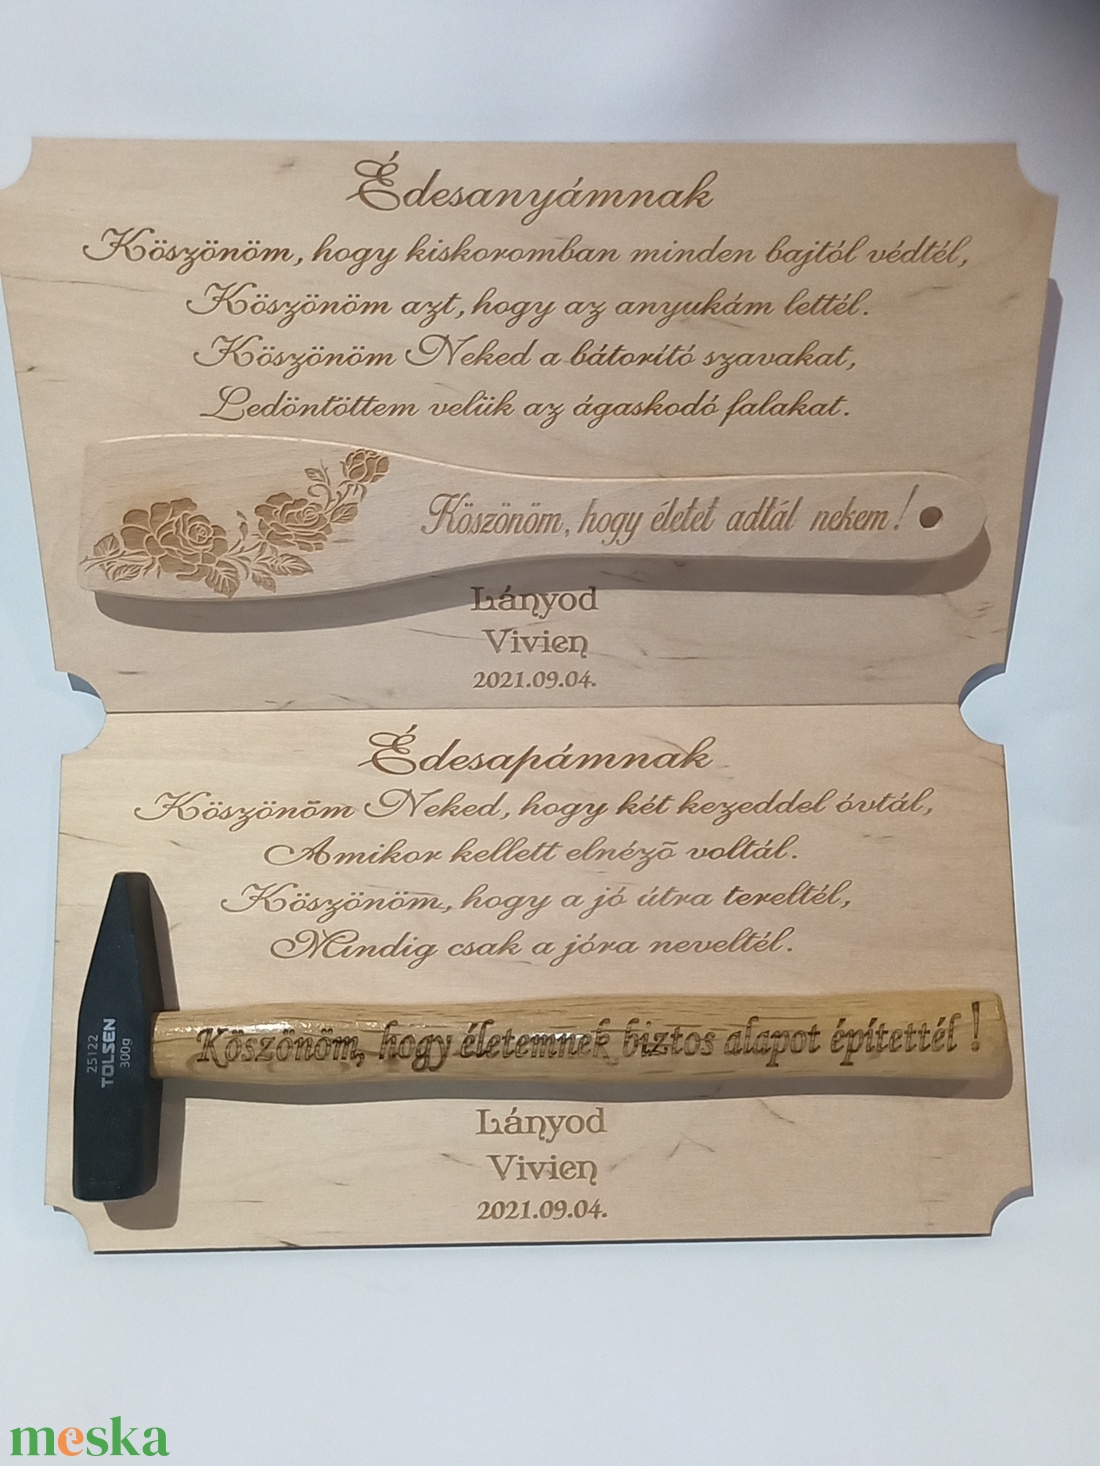 Édesanyámnak
Köszönöm, hogy kiskoromban minden bajtól védtél,
Köszönöm azt, hogy az anyukám lettél.
Köszönöm Neked a bátorító szavakat,
Ledöntöttem velük az ágaskodó falakat.
Köszönöm, hogy életet adtál nekem!
Lányod
Vivien
2021.09.04.
Édesapámnak
Köszönöm Neked, hogy két kezeddel óvtál,
Amikor kellett elnéző voltál.
Köszönöm, hogy a jó útra tereltél,
Mindig csak a jóra neveltél.
25122
TOLSEN
300g
Köszönöm, hogy életemnek biztos alapot építettél !
Lányod
Vivien
2021.09.04.
meska